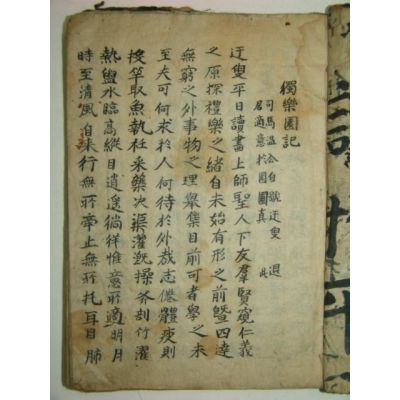 獨樂園記
司馬溫公自號迂叟 退
居適意於園圃真 此
迂叟平日讀書上師聖人下友羣賢窺仁義
之原探禮樂之緒自未始有形之前曁四達
無窮之外事物之理擧集目前可者學之未
至夫可何求於人何待於外哉志倦體疲則
投竿取魚執衽采藥決渠灌 操斧剖竹濯
熱盥水臨高縱目逍遙徜徉惟意所適明月
時至清風自来行無所牽止無所托耳目肺